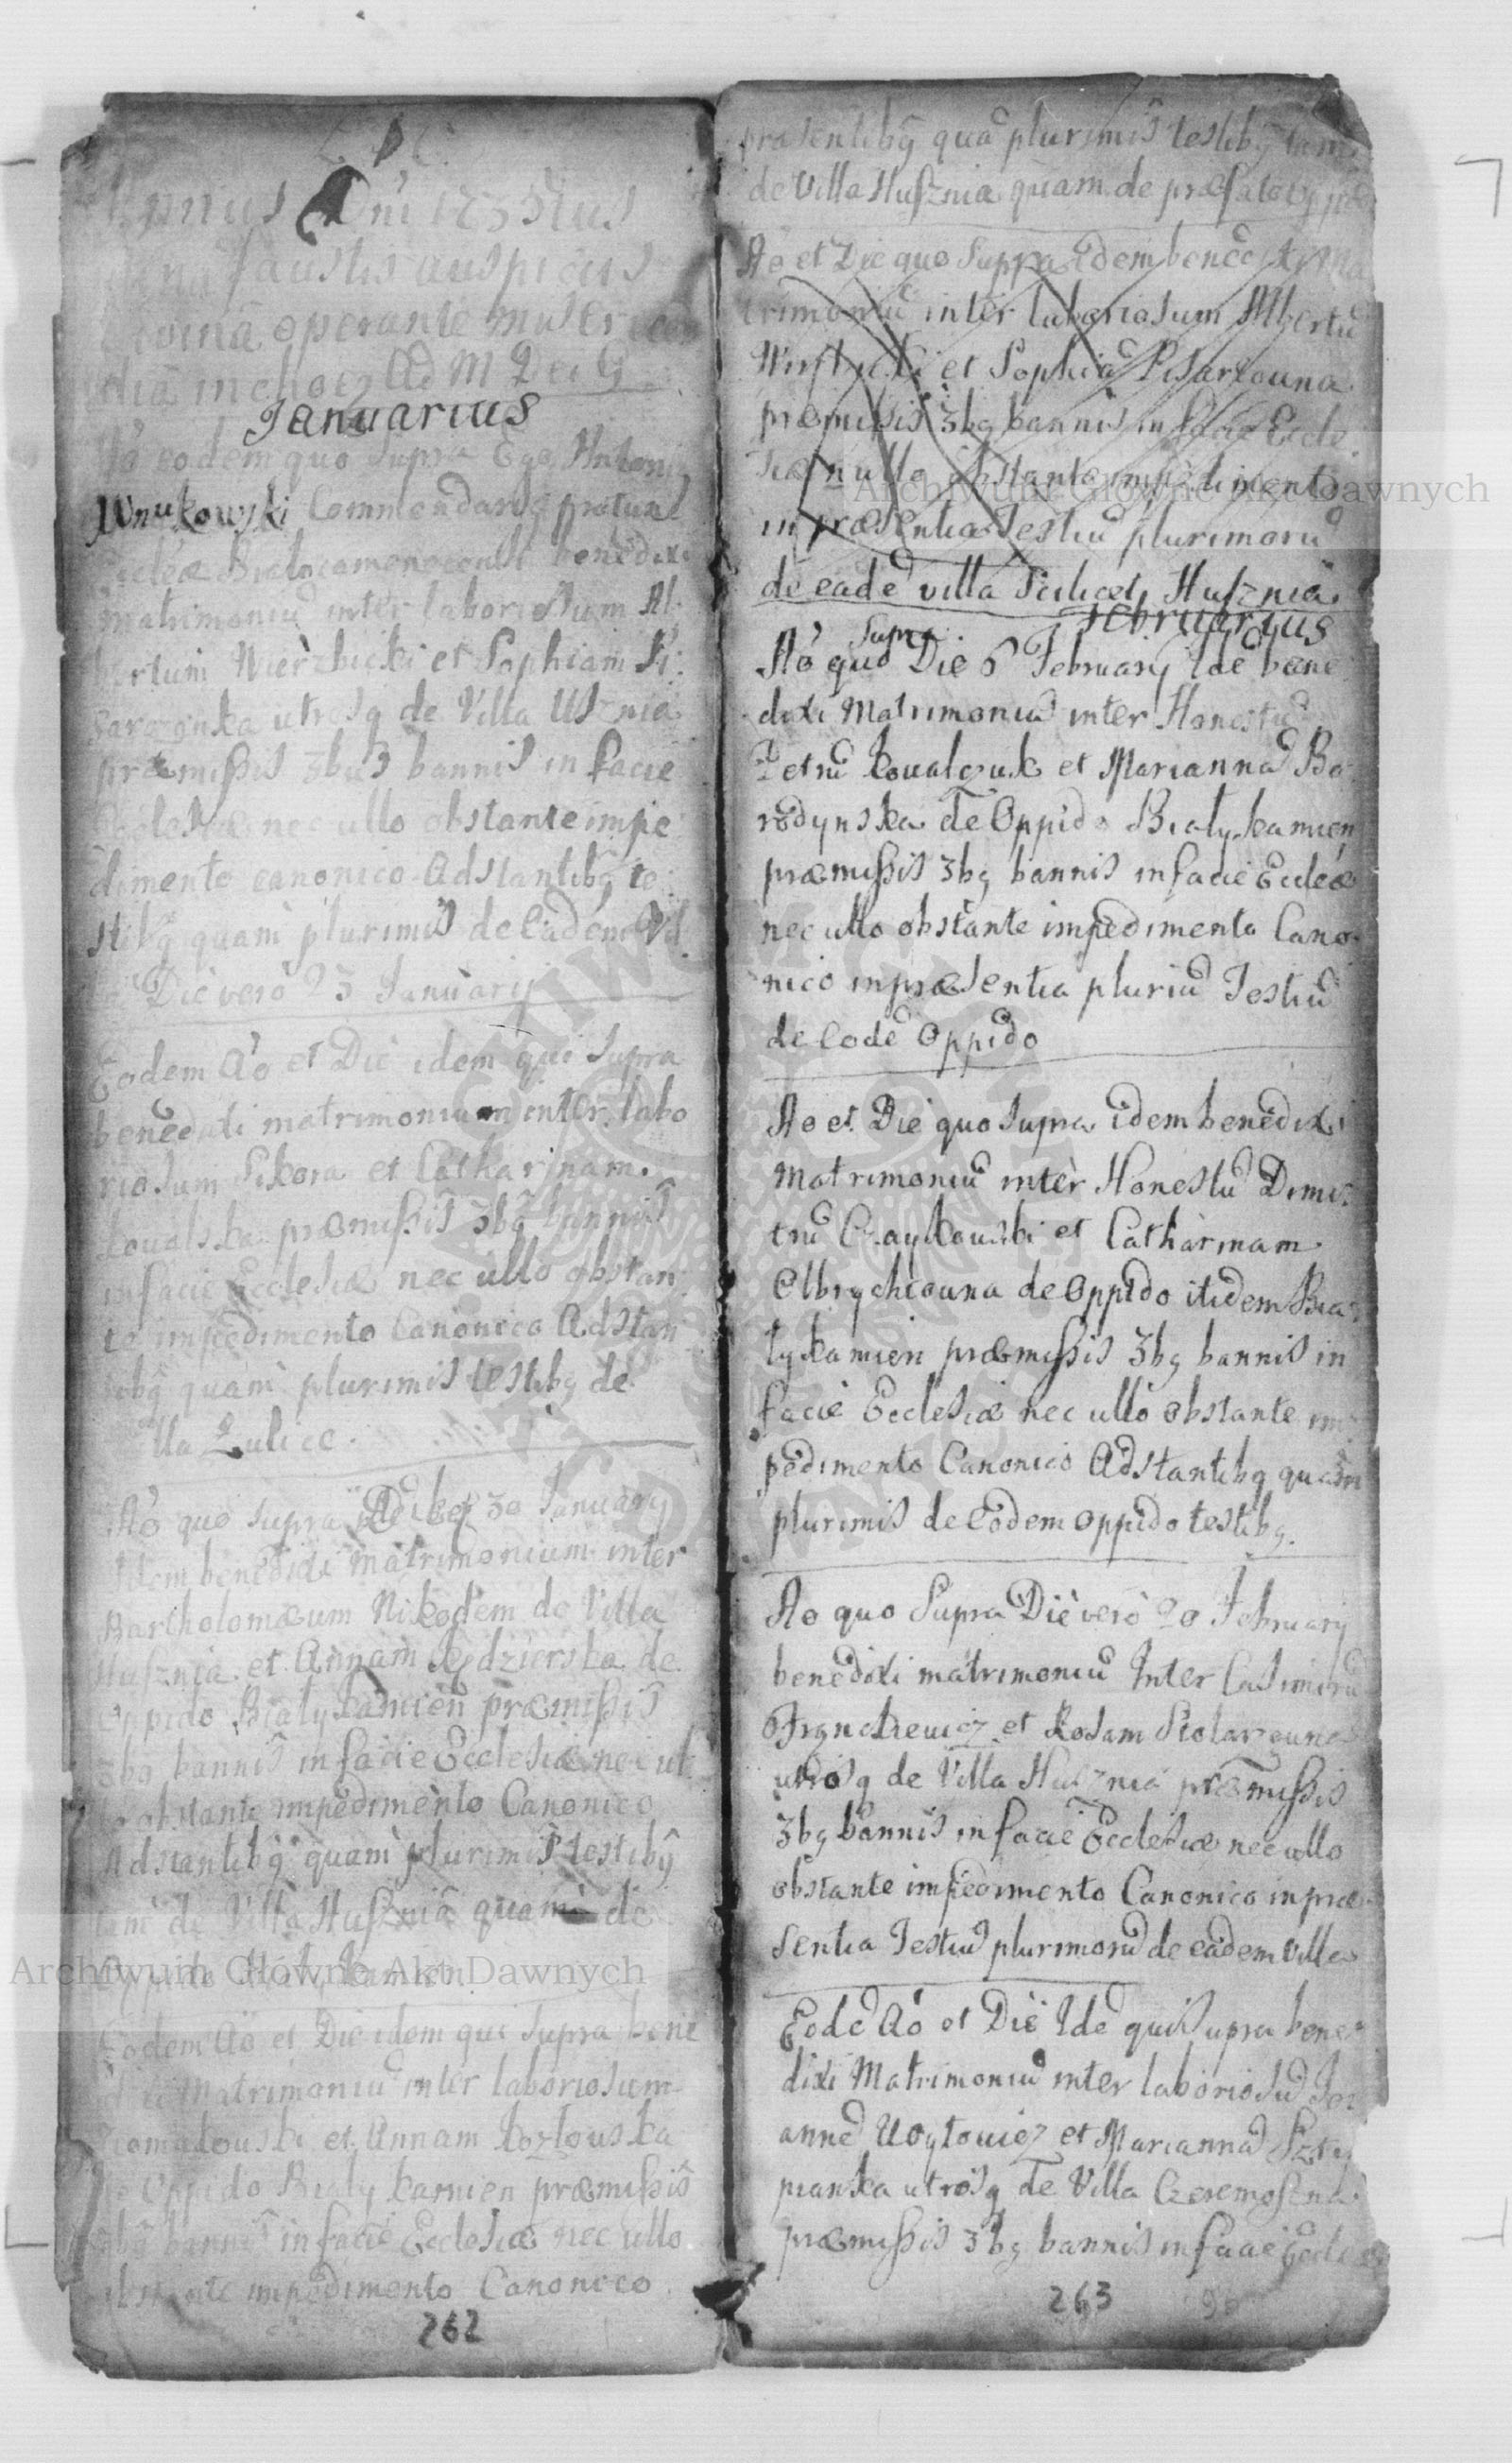 faustis auspiciis
operante
Ad M D ei G
Januarius
Aö eodem quo Supra Ego Antoni
Wnukowski Commendarg protunc
benedixi
matrimoniu inter laboriosum Al:
bertum Wierzbicki et Sophiam Pi:
sarzonka utrosq de Villa Usznia
præmissis 3bus bannis in facie
Ecclesiæ nec ullo obstante impe
dimento canonico Adstantibg te
stibg quam plurimis de Eadem Vil
la Die vero 23 Januarij
Eodem Aö et Die idem qui Supra
benedixi matrimonium inter labo
riosum Sikora et Catharinam
Kovalska præmissis 3bg bannis
in facie Ecclesiæ nec ullo obstan
te impedimento Canonico Adstan
tibg quam plurimis testibg de
Villa Zulice.
Aö quo Supra 30 January
Idem benedixi matrimonium inter
Bartholomæum Nikodem de Villa
Husznia et Annam Kędzierska de
Oppido Bialykamien præmissis
3bg bannis in facie Ecclesiæ nec ul
lo obstante impedimento Canonico
Adstantibg quam plurimis testibg
tam de Villa Husznia quam de
Oppido Bialykamien
Eodem Aö et Die idem qui Supra bene
dixi Matrimoniu inter laboriosum
et Annam Kozlouska
de Oppido Bialykamien præmissis
3bg bannis in facie Ecclesiæ nec ullo
obstante impedimento Canonico
262
præsentibg qua plurimis testibg tam
de Villa Husznia quam de præfato
Aö et Die quo Supra Idem benedixi Ma
trimoniu inter laboriosum Albertu
et Sophia Pisarzouna
præmissis 3bg bannis in facie Eccle
siæ nullo obstante impedimento
in præsentia Testiu plurimoru
de eade villa Scilicet Husznia
Februarius
Supra
Aö quo Die 6 February Ide bene
dixi Matrimoniu inter Honestu
Petru Koualczuk et Marianna Bo
rodynska de Oppido Bialykamien
præmissis 3bg bannis in facie Eccleæ
nec ullo obstante impedimento Cano
nico in præsentia pluriu Testiu
de Eode Oppido
Ao et Die quo Supra idem benedixi
Matrimoniu inter Honestu Dimi:
tru Czaykouski et Catharinam
Olbrychtouna de Oppido itidem Bia:
lykamien præmissis 3bg bannis in
facie Ecclesiæ nec ullo obstante im:
pedimento Canonico Adstantibg quam
plurimis de Eodem Oppido testibg.
Ao quo Supra Die vero 20 February
benedixi matrimoniu Inter Casimiru
et Rosam Stolarzouna
utrosq de Villa Husznia præmissis
3bg bannis in facie Ecclesiæ nec ullo
obstante impedimento Canonico in præ
sentia Testiu plurimoru de eadem Villa
Eode Aö et Die Ide qui Supra bene:
dixi Matrimoniu inter laboriosu Jo
anne Uoytouicz et Marianna
pianka utrosq de Villa Czeremosznia
præmissis 3bg bannis in facie Eccleæ
263
Archiwum Główne Akt Dawnych
Archiwum Główne Akt Dawnych